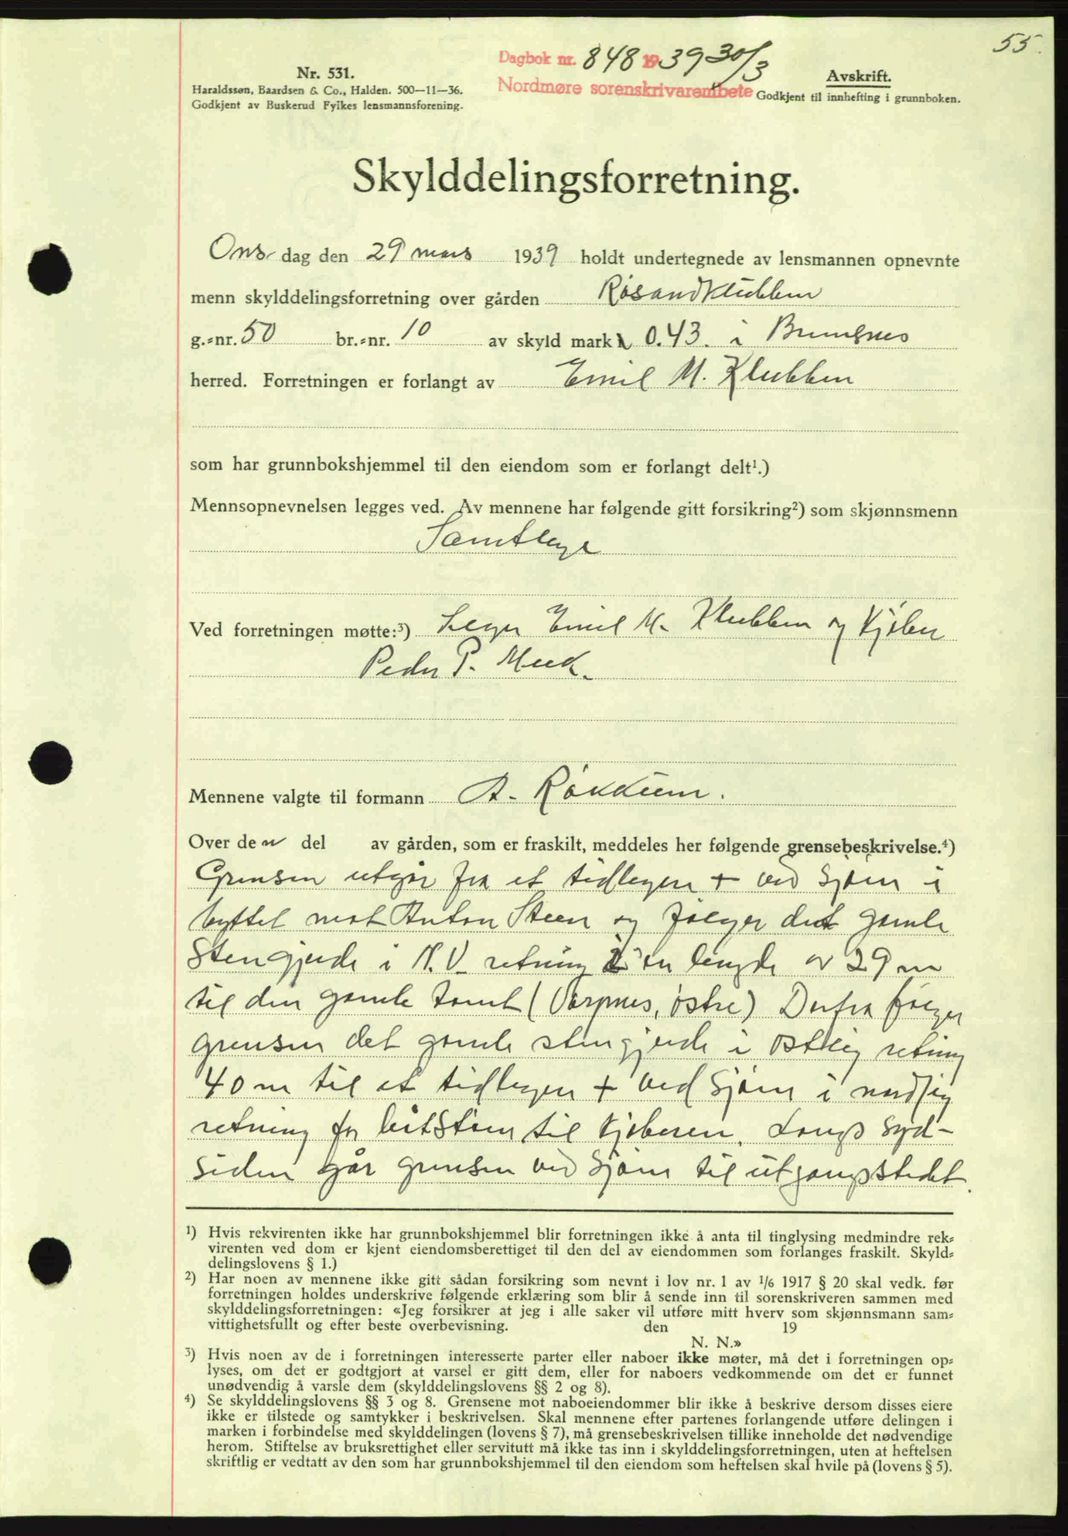 55.
Dagbok nr. 848 1939 30/3
Nordmøre sorenskrivarembete
Nr. 531.
Haraldssøn, Baardsen & Co., Halden. 500—11—36.
Godkjent av Buskerud Fylkes lensmannsforening.
Avskrift.
Godkjent til innhefting i grunnboken.
Skylddelingsforretning.
Ons dag den 29 mars 1939 holdt undertegnede av lensmannen opnevnte
menn skylddelingsforretning over gården Røsandklubben
g.-nr. 50 br.-nr. 10 av skyld mark 0.43. i Bremsnes
herred. Forretningen er forlangt av Emil M. Klubben
som har grunnbokshjemmel til den eiendom som er forlangt delt¹.)
Mennsopnevnelsen legges ved. Av mennene har følgende gitt forsikring²) som skjønnsmenn
Samtlege
Ved forretningen møtte:³) Emil M. Klubben og Kjøber
Peder P.
Mennene valgte til formann A. Røkkum.
Over den del av gården, som er fraskilt, meddeles her følgende grensebeskrivelse.⁴)
Grensen utgår fra et tidlegere + ved Sjøen i
byttet mot Anton Steen og følger det gamle
Stengjerde i N.V. retning i en lengde av 29 m
til den gamle tomt (Vorpnes, østre) Derfra følger
grensen det gamle stengjerde i østlig retning
40 m til et tidlegere + ved Sjøen i nordlig
retning for båtstøen til Kjøberen. Langs Syd-
siden går grensen ved Sjøen til utgangsstedet.
¹) Hvis rekvirenten ikke har grunnbokshjemmel blir forretningen ikke å anta til tinglysing medmindre rek-
virenten ved dom er kjent eiendomsberettiget til den del av eiendommen som forlanges fraskilt. Skyld-
delingslovens § 1.)
²) Har noen av mennene ikke gitt sådan forsikring som nevnt i lov nr. 1 av 1/6 1917 § 20 skal vedk. før
forretningen holdes underskrive følgende erklæring som blir å sende inn til sorenskriveren sammen med
skylddelingsforretningen: «Jeg forsikrer at jeg i alle saker vil utføre mitt hverv som skjønnsmann sam-
vittighetsfullt og efter beste overbevisning. den 19
N. N.»
³) Hvis noen av de i forretningen interesserte parter eller naboer ikke møter, må det i forretningen op-
lyses, om det er godtgjort at varsel er gitt dem, eller for naboers vedkommende om det er funnet
unødvendig å varsle dem (skylddelingslovens §§ 2 og 8).
⁴) Se skylddelingslovens §§ 3 og 8. Grensene mot naboeiendommer blir ikke å beskrive dersom disses eiere
ikke er tilstede og samtykker i beskrivelsen. Skal mennene efter partenes forlangende utføre delingen i
marken i forbindelse med skylddelingen (lovens § 7), må grensebeskrivelsen tillike inneholde det nødvendige
herom. Stiftelse av bruksrettighet eller servitutt må ikke tas inn i skylddelingsforretningen, uten at heftelsen
skriftlig er vedtatt av den som har grunnbokshjemmel til den eiendom som heftelsen skal hvile på (lovens § 5).